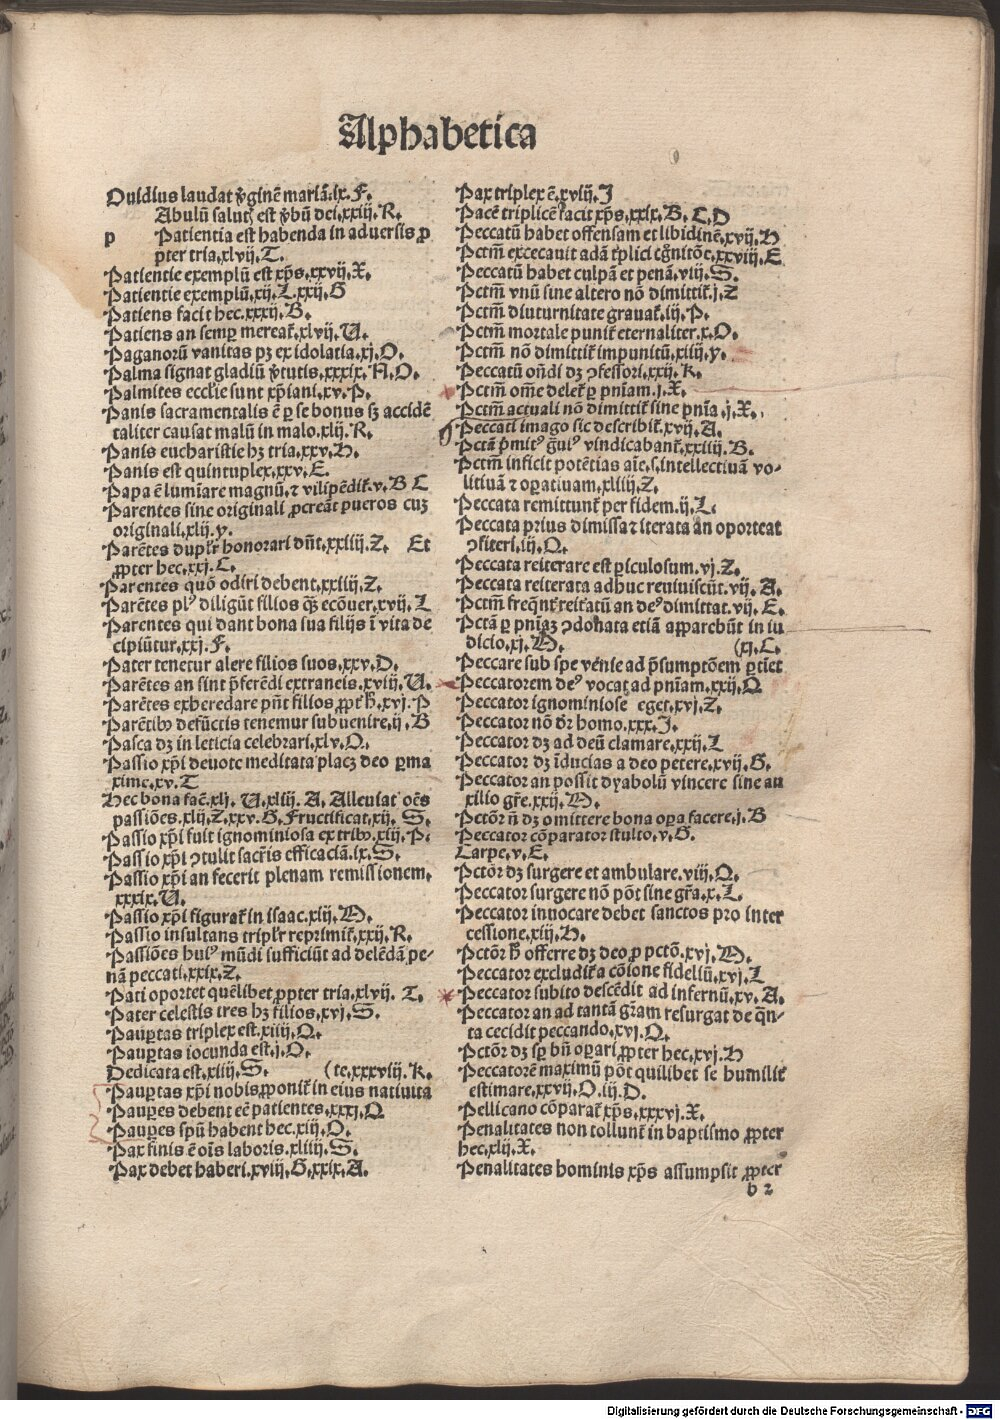 Alphabetica
Ouidius laudat v̄ginē mariā.ix.F.
Abulū salutꝭ est v̄bū dei.xxiij.R.
p Patientia est habenda in aduersis ꝓ
pter tria.xlvij.T.
Patientie exemplū est xp̄s.xxvij.X.
Patientie exemplū.xij.L.xxij.G
Patiens facit hec.xxxij.B.
Patiens an semꝑ mereat᷑.xlvij.U.
Paganorū vanitas pꝫ ex idolatia.xj.O.
Palma signat gladiū v̄tutis.xxxix.N.O.
Palmites ecclie sunt xp̄iani.xv.P.
Panis sacramentalis ē ꝑ se bonus sꝫ accidē
taliter causat malū in malo.xlij.R.
Panis eucharistie hꝫ tria.xxv.H.
Panis est quintuplex.xxv.E.
Papa ē lumīare magnū.⁊ vilipēdit᷑.v.B C
Parentes sine originali ꝓcreāt pueros cuꝫ
originali.xlij.y.
Parētes duplr̄ honorari dn̄t.xxiiij.Z. Et
ꝓpter hec.xxj.C.
Parentes quō odiri debent.xxiiij.Z.
Parētes plꝰ diligūt filios qꝫ ecōuer.xvij.L
Parentes qui dant bona sua filijs ī vita de
cipiūtur.xxj.F.
Pater tenetur alere filios suos.xxv.D.
Parētes an sint p̄ferēdi extraneis.xviij.U.
Parētes exheredare pn̄t filios ꝓpt h̄.xvj.P
Parētibꝫ defūctis tenemur subuenire.ij.B
Pasca dꝫ in leticia celebrari.xlv.O.
Passio xp̄i deuote meditata placꝫ deo ꝑma
xime.xv.T
Hec bona fac̄.xlj. U.xliij. A. Alleuiat oēs
passiōes.xlij.Z.xxv.G. Fructificat.xij. S.
Passio xp̄i fuit ignominiosa ex tribꝫ.xlij.P.
Passio xp̄i ꝯtulit sacrīs efficaciā.ix.S.
Passio xp̄i an fecerit plenam remissionem.
xxxix.U.
Passio xp̄i figurat᷑ in isaac.xlij.M.
Passio insultans triplr̄ reprimit᷑.xxij.R.
Passiōes huiꝰ mūdi sufficiūt ad delēdā pe-
nā peccati.xxix.Z.
Pati oportet quēlibet ꝓpter tria.xlvij. T.
Pater celestis tres hꝫ filios.xvj.S.
Pauꝑtas triplex est.xiiij.Q.
Pauꝑtas iocunda est.j.O.
Dedicata est.xliij.S. (te.xxxviij.K.
Pauꝑtas xp̄i nobis ꝓponit᷑ in eius natiuita
Pauꝑes debent eē patientes.xxxj.Q
Pauꝑes spū habent hec.xlij.O.
Pax finis ē oīs laboris.xliiij.S.
Pax debet haberi.xviij.G.xxix.A.
Pax triplex ē.xviij.I
Pacē triplicē facit xp̄s.xxix.B. C.D
Peccatū habet offensam et libidinē.xvij.H
Pctm̄ excecauit adā t᷑plici cḡnitōe.xxviij.E
Peccatū habet culpā et penā.viij.S.
Pctm̄ vnū sine altero nō dimittit᷑.j.Z
Pctm̄ diuturnitate grauat᷑.iij.P.
Pctm̄ mortale punit᷑ eternaliter.x.O.
Pctm̄ nō dimittit᷑ impunitū.xliij.y.
Peccatū on̄di dꝫ ꝯfessori.xxij.K.
Pctm̄ om̄e delet᷑ ꝑ pn̄iam.j.X.
Pctm̄ actuali nō dimittit᷑ sine pn̄ia.j.X.
Peccati imago sic describit᷑.xvij.A.
Pctā p̄mitꝰ ḡuiꝰ vindicabant᷑.xxiiij.B.
Pctm̄ inficit potētias aīe.s.intellectiuā vo-
litiuā ⁊ oꝑatiuam.xliij.Z.
Peccata remittunt᷑ per fidem.ij.L.
Peccata prius dimissa ⁊ iterata an oporteat
ꝯfiteri.iij.Q.
Peccata reiterare est ꝑiculosum.vj.Z.
Peccata reiterata adhuc reuiuiscūt.vij. A.
Pctm̄ freqn̄t reit᷑atū an deꝰ dimittat.vij. E.
Pctā ꝑ pn̄iaꝫ ꝯdonata etiā apparebūt in iu
dicio.xj.M. (xj.C.
Peccare sub spe venie ad p̄sumptōem ꝑtīet
Peccatorem deꝰ vocat ad pn̄iam.xxij.Q
Peccator ignominiose eget.xvj.Z.
Peccator nō dr̄ homo.xxx.I.
Peccator dꝫ ad deū clamare.xxij.L
Peccator dꝫ īducias a deo petere.xvij.G.
Peccator an possit dyabolū vincere sine au
xilio gr̄e.xxij.M.
Pctōr n̄ dꝫ omittere bona oꝑa facere.j.B
Peccator cōparatur stulto.v.G.
Carpe.v.E.
Pctōr dꝫ surgere et ambulare.viij.Q.
Peccator surgere nō pōt sine gr̄a.x.L.
Peccator inuocare debet sanctos pro inter
cessione.xiij.H.
Pctōr h̄ offerre dꝫ deo ꝓ pctō.xvj.M.
Peccator excludit᷑ a cōione fideliū.xvj.L
Peccator subito descēdit ad infernū.xv.A.
Peccator an ad tantā gr̄am resurgat de qn̄-
ta cecidit peccando.xvj.Q.
Pctōr dꝫ sꝑ bn̄ oꝑari ꝓpter hec.xvj.H
Peccatorē maximū pōt quilibet se humilit᷑
estimare.xxvij.O.iij.D.
Pellicano cōparat᷑ xp̄s.xxxvj.X.
Penalitates non tollunt᷑ in baptismo ꝓpter
hec.xlij.X.
Penalitates hominis xp̄s assumpsit ꝓpter
b 2
Digitalisierung gefördert durch die Deutsche Forschungsgemeinschaft - DFG